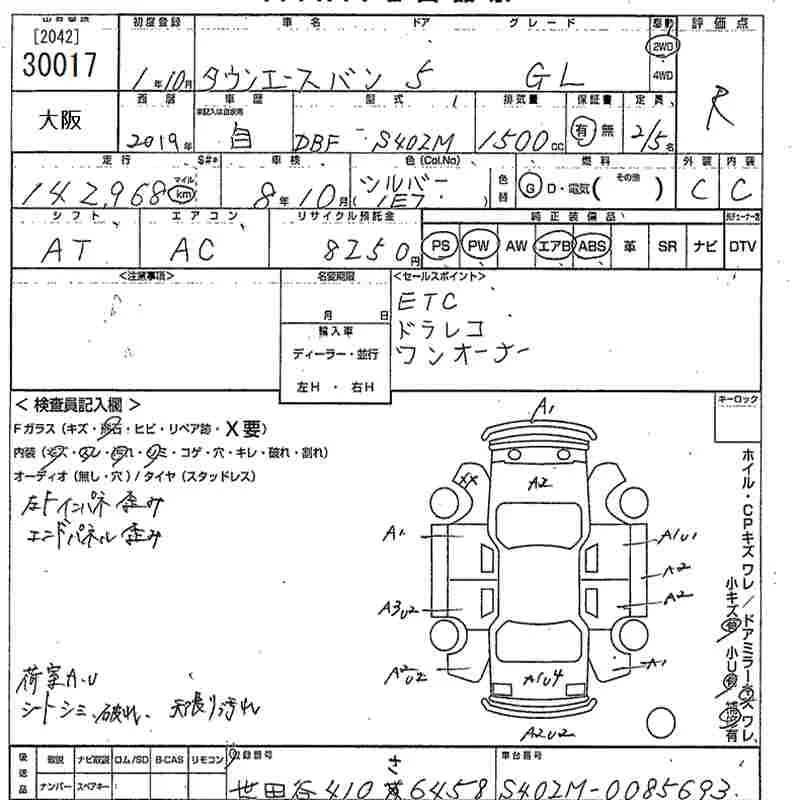 [2042]
30017
大阪
初度登録 車名 ドア グレード 駆動 評価点
1年10月 タウンエースバン 5 GL 2WD 4WD R
西暦 車歴 型式 排気量 保証書 定員
2019年 自 DBF S402M 1500cc 有 無 2/5名
走行 S#* 車検 色(Col.No) 燃料 外装 内装
142,968 マイル km 8年10月 シルバー (1E7) 色替 G D・電気( その他 ) C C
シフト エアコン リサイクル預託金 純正装備品
AT AC 8250円 PS PW AW エアB ABS 革 SR ナビ DTV
<注意事項> 名変期限 <セールスポイント>
月 日
輸入車
ディーラー・並行
左H ・ 右H
ETC
ドラレコ
ワンオーナー
<検査員記入欄>
Fガラス(キズ・飛石・ヒビ・リペア跡・X要)
内装(キズ・スレ・汚れ・シミ・コゲ・穴・キレ・破れ・割れ)
オーディオ(無し・穴)/タイヤ(スタッドレス)
左Fインパネ歪み
エンドパネル歪み
荷室A.U
シートシミ、破れ、天張り汚れ
キーロック
A1
XX
A2
A1
A1U1
A2
A3U2
A2
A2U2
A1
A1U4
A2U2
ホイル・CPキズワレ/ドアミラーキズワレ
小キズ有 小U有
後送品 取説 ナビ取説 ロム/SD B-CAS リモコン
ナンバー スペアキー
登録番号 車台番号
世田谷410 さ 6458 S402M-0085693